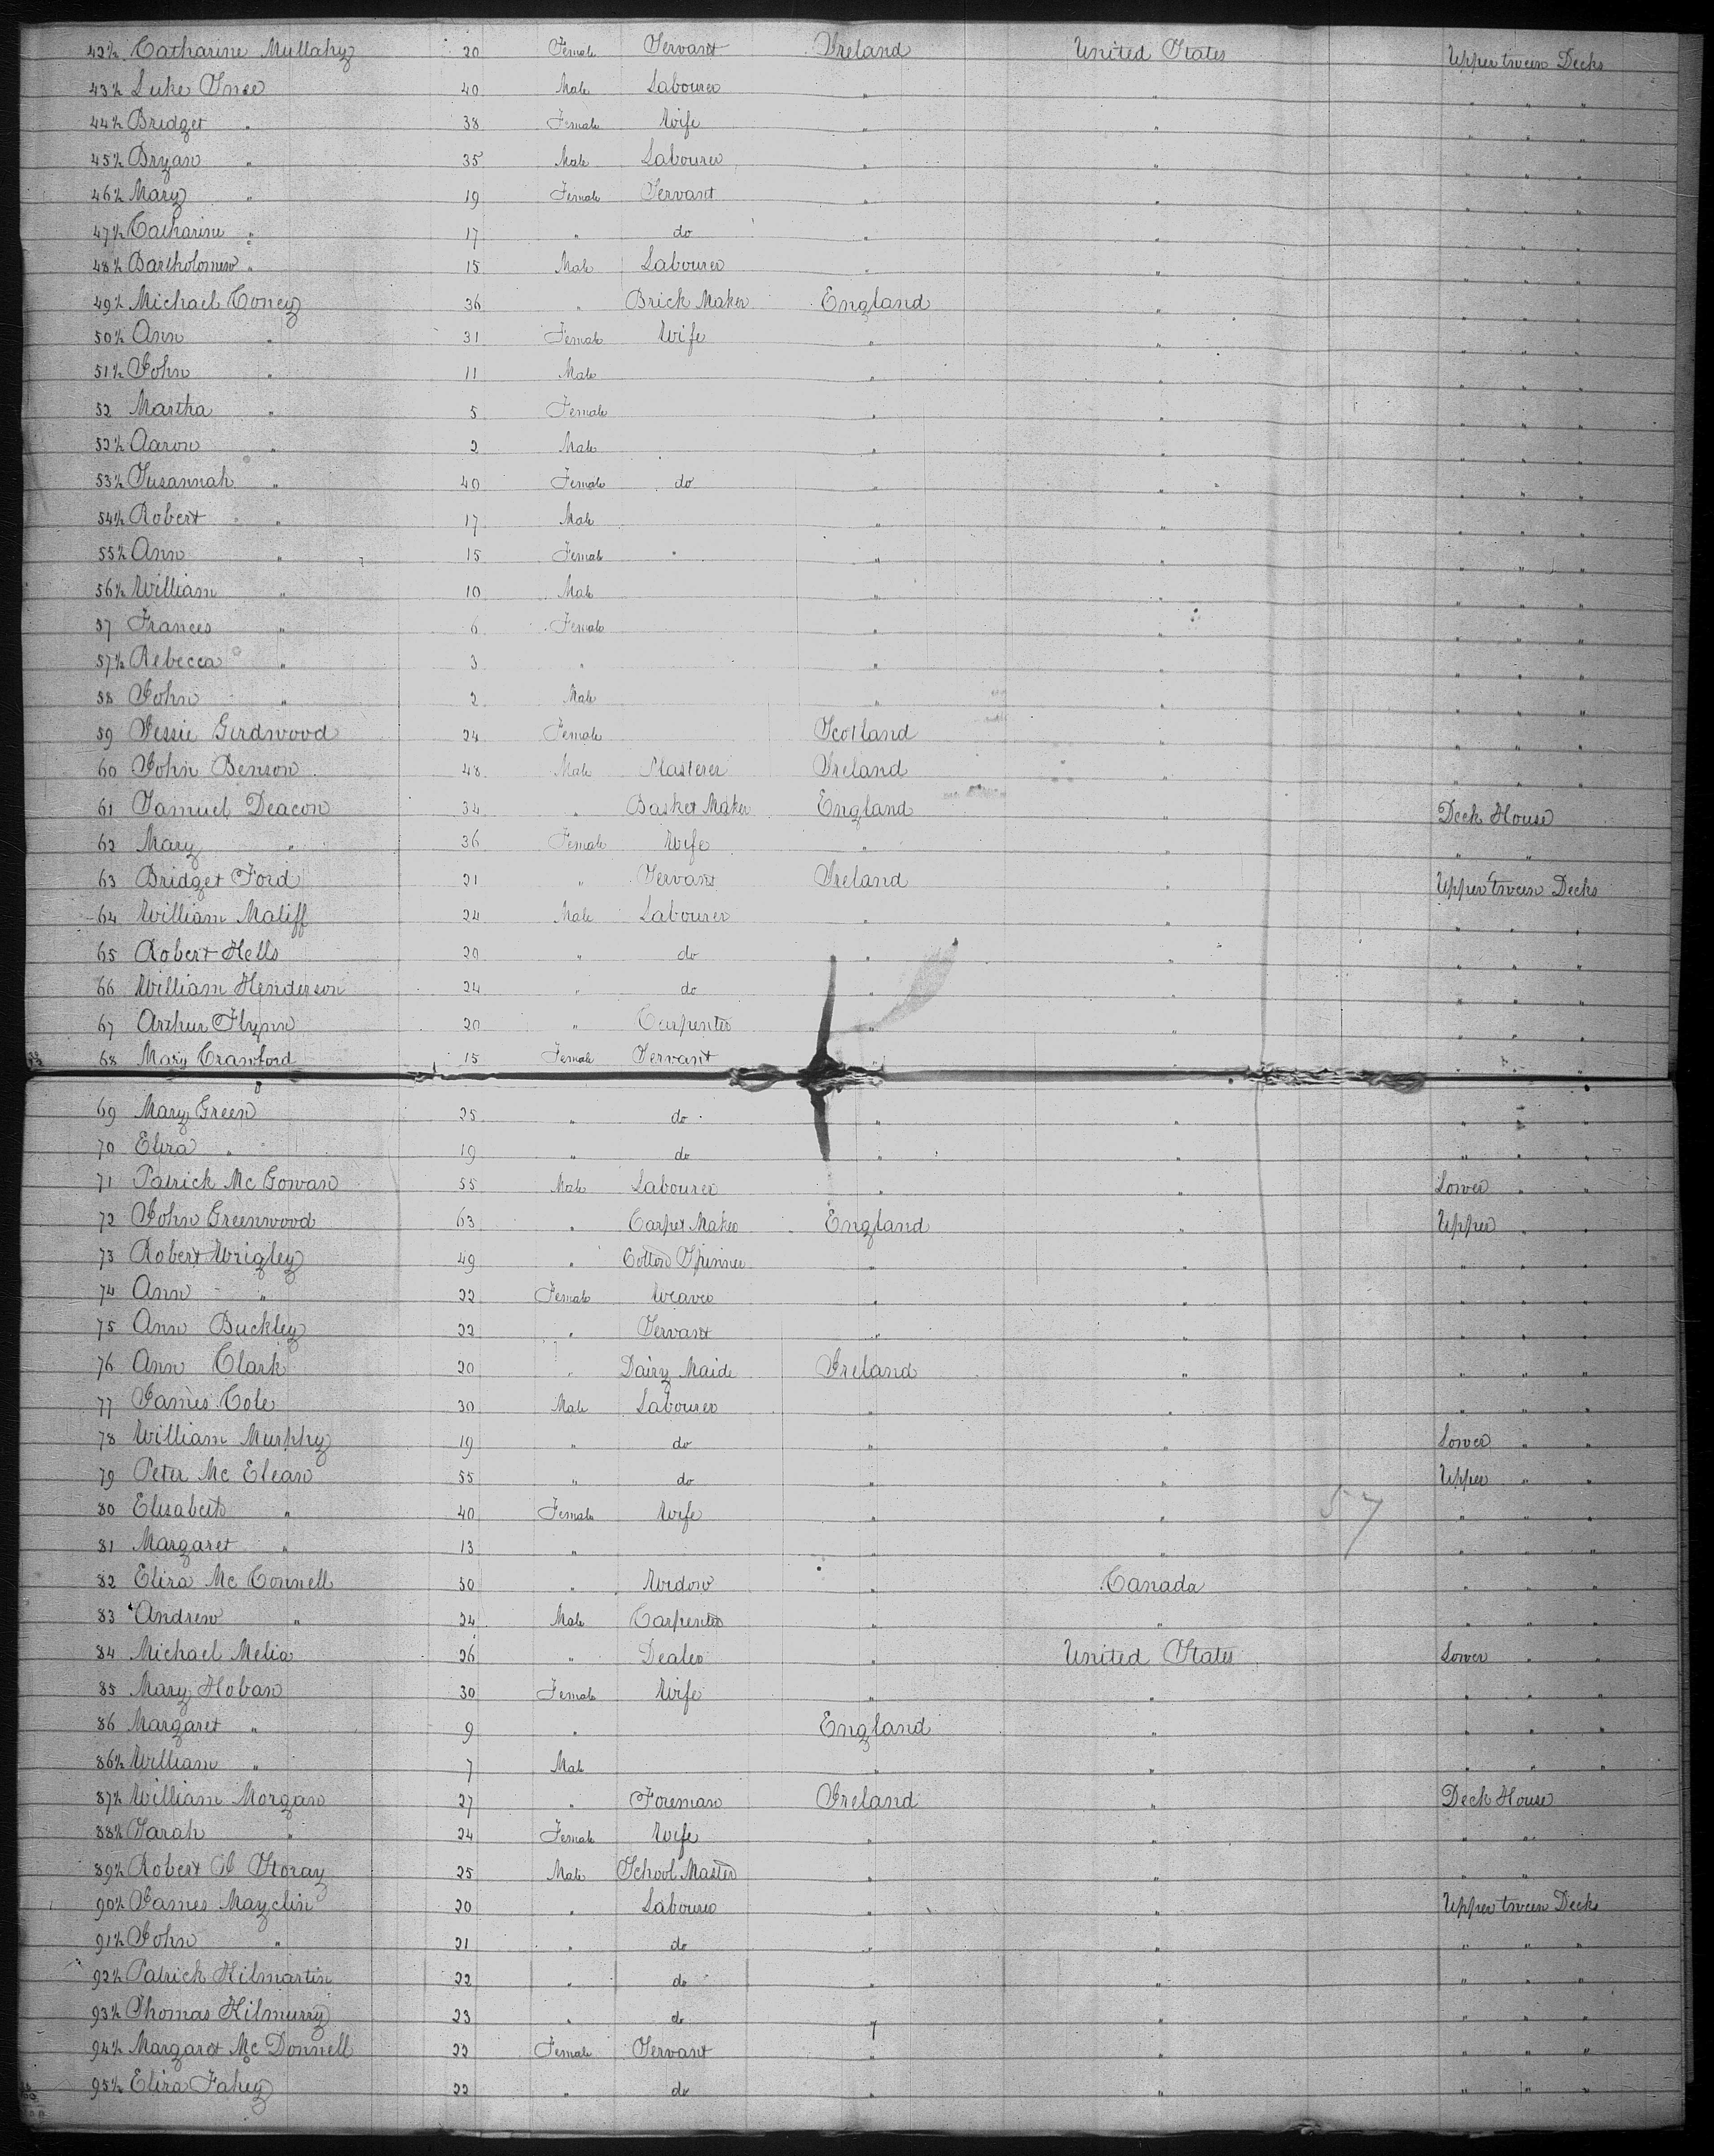 42½ Catharine Mullahy 20 Female Servant Ireland United States Upper tween Decks
43½ Luke 40 Male Labourer " " " " "
44½ Bridget " 38 Female Wife " " " " "
45½ Bryan " 35 Male Labourer " " " " "
46½ Mary " 19 Female Servant " " " " "
47½ Catharine " 17 " do " " " " "
48½ Bartholomew " 15 Male Labourer " " " " "
49½ Michael Coney 36 " Brick Maker England " " " "
50½ Ann " 31 Female Wife " " " " "
51½ John " 11 Male " " " " "
52 Martha " 5 Female " " " " "
52½ Aaron " 2 Male " " " " "
53½ Susannah " 40 Female do " " " " "
54½ Robert " 17 Male " " " " "
55½ Ann " 15 Female " " " " " "
56½ William " 10 Male " " " " "
57 Frances " 6 Female " " " " "
57½ Rebecca " 3 " " " " " "
58 John " 2 Male " " " " "
59 Jessie Girdwood 24 Female Scotland " " " "
60 John Benson 48 Male Plasterer Ireland " " " "
61 Samuel Deacon 34 " Basket Maker England " Deck House
62 Mary " 36 Female Wife " " " "
63 Bridget Ford 21 " Servant Ireland " Upper tween Decks
64 William Maliff 24 Male Labourer " " " " "
65 Robert Hells 20 " do " " " " "
66 William Henderson 24 " do " " " " "
67 Arthur Flynn 20 " Carpenter " " " " "
68 Mary Crawford 15 Female Servant " " "
69 Mary Green 25 " do " " " " "
70 Eliza " 19 " do " " " " "
71 Patrick McGowan 55 Male Labourer " " Lower " "
72 John Greenwood 63 " Carpet Maker England " Upper " "
73 Robert Wrigley 49 " Cotton Spinner " " " " "
74 Ann " 22 Female Weaver " " " " "
75 Ann Buckley 22 " Servant " " " " "
76 Ann Clark 20 " Dairy Maide Ireland " " " "
77 James Cole 30 Male Labourer " " " " "
78 William Murphy 19 " do " " Lower " "
79 Peter Mc Elean 55 " do " " Upper " "
80 Elisabeth " 40 Female Wife " " " " "
81 Margaret " 13 " " " " " "
82 Eliza Mc Connell 50 " Widow " Canada " " "
83 Andrew " 24 Male Carpenter " " " " "
84 Michael Melia 26 " Dealer " United States Lower " "
85 Mary Hoban 30 Female Wife " " " " "
86 Margaret " 9 " England " " " "
86½ William " 7 Male " " " " "
87½ William Morgan 27 " Foreman Ireland " Deck House
88½ Sarah " 24 Female Wife " " " "
89½ Robert Storay 25 Male School Master " " " "
90½ James Mayclin 20 " Labourer " " Upper tween Decks
91½ John " 21 " do " " " " "
92½ Patrick Kilmartin 22 " do " " " " "
93½ Thomas Kilmurry 23 " do " " " " "
94½ Margaret Mc Donnell 22 Female Servant " " " " "
95½ Eliza Fahey 22 " do " " " " "
57